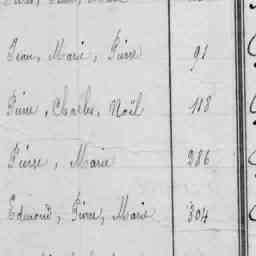 Jean, Marie, Pierre 91
Pierre, Charles, Noël 118
Pierre, Marie 286
Edmond, Pierre, Marie 304